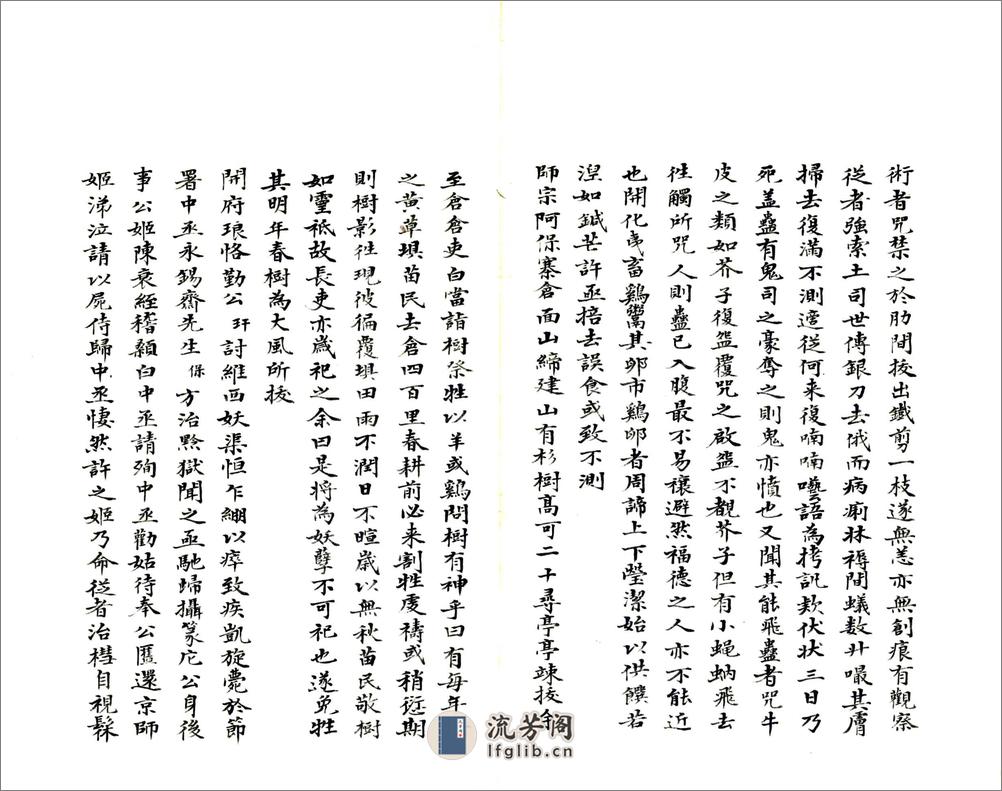 術者咒禁之於肋間拔出鐵剪一枝遂無恙亦無創痕有觀察
從者強索土司世傳銀刀去俄而病痢牀褥間蟻数升嘬其膚
掃去復滿不測遑從何来復喃喃囈語為栲訊欵伏状三日乃
死盖蠱有鬼司之豪奪之則鬼亦憤也又聞其能飛蠱者咒牛
皮之類如芥子復盌覆咒之啟盌不覩芥子但有小蝿蚋飛去
徃觸所咒人則蠱已入腹最不易禳避然福德之人亦不能近
也開化夷畜鷄鬻其卵市鷄卵者周諦上下瑩潔始以供饌若
湼如鍼芒許亟掊去誤食或致不測
師宗阿保寨倉面山締建山有杉樹髙可二十尋亭亭竦挍余
至倉倉吏白當詣樹祭牲以羊或鷄問樹有神乎曰有每年
之黄草埧苗民去倉四百里春耕前必来割牲虔禱或稍愆期
則樹影徃現彼徧覆埧田雨不潤日不暄歳以無秋苗民敬樹
如靈祇故長吏亦歳祀之余曰是将為妖孽不可祀也遂免牲
其明年春樹為大風所拔
開府琅恪勤公玕討維西妖渠恒乍綳以瘁致疾凱旋薨於節
署中丞永錫齋先生保方治黔獄聞之亟馳歸攝篆庀公身後
事公姬陳衰絰稽顙白中丞請殉中丞勸姑待奉公匶還京師
姬涕泣請以屍侍歸中丞悽然許之姬乃命從者治槥自視髹
流芳阁
lfglib.cn